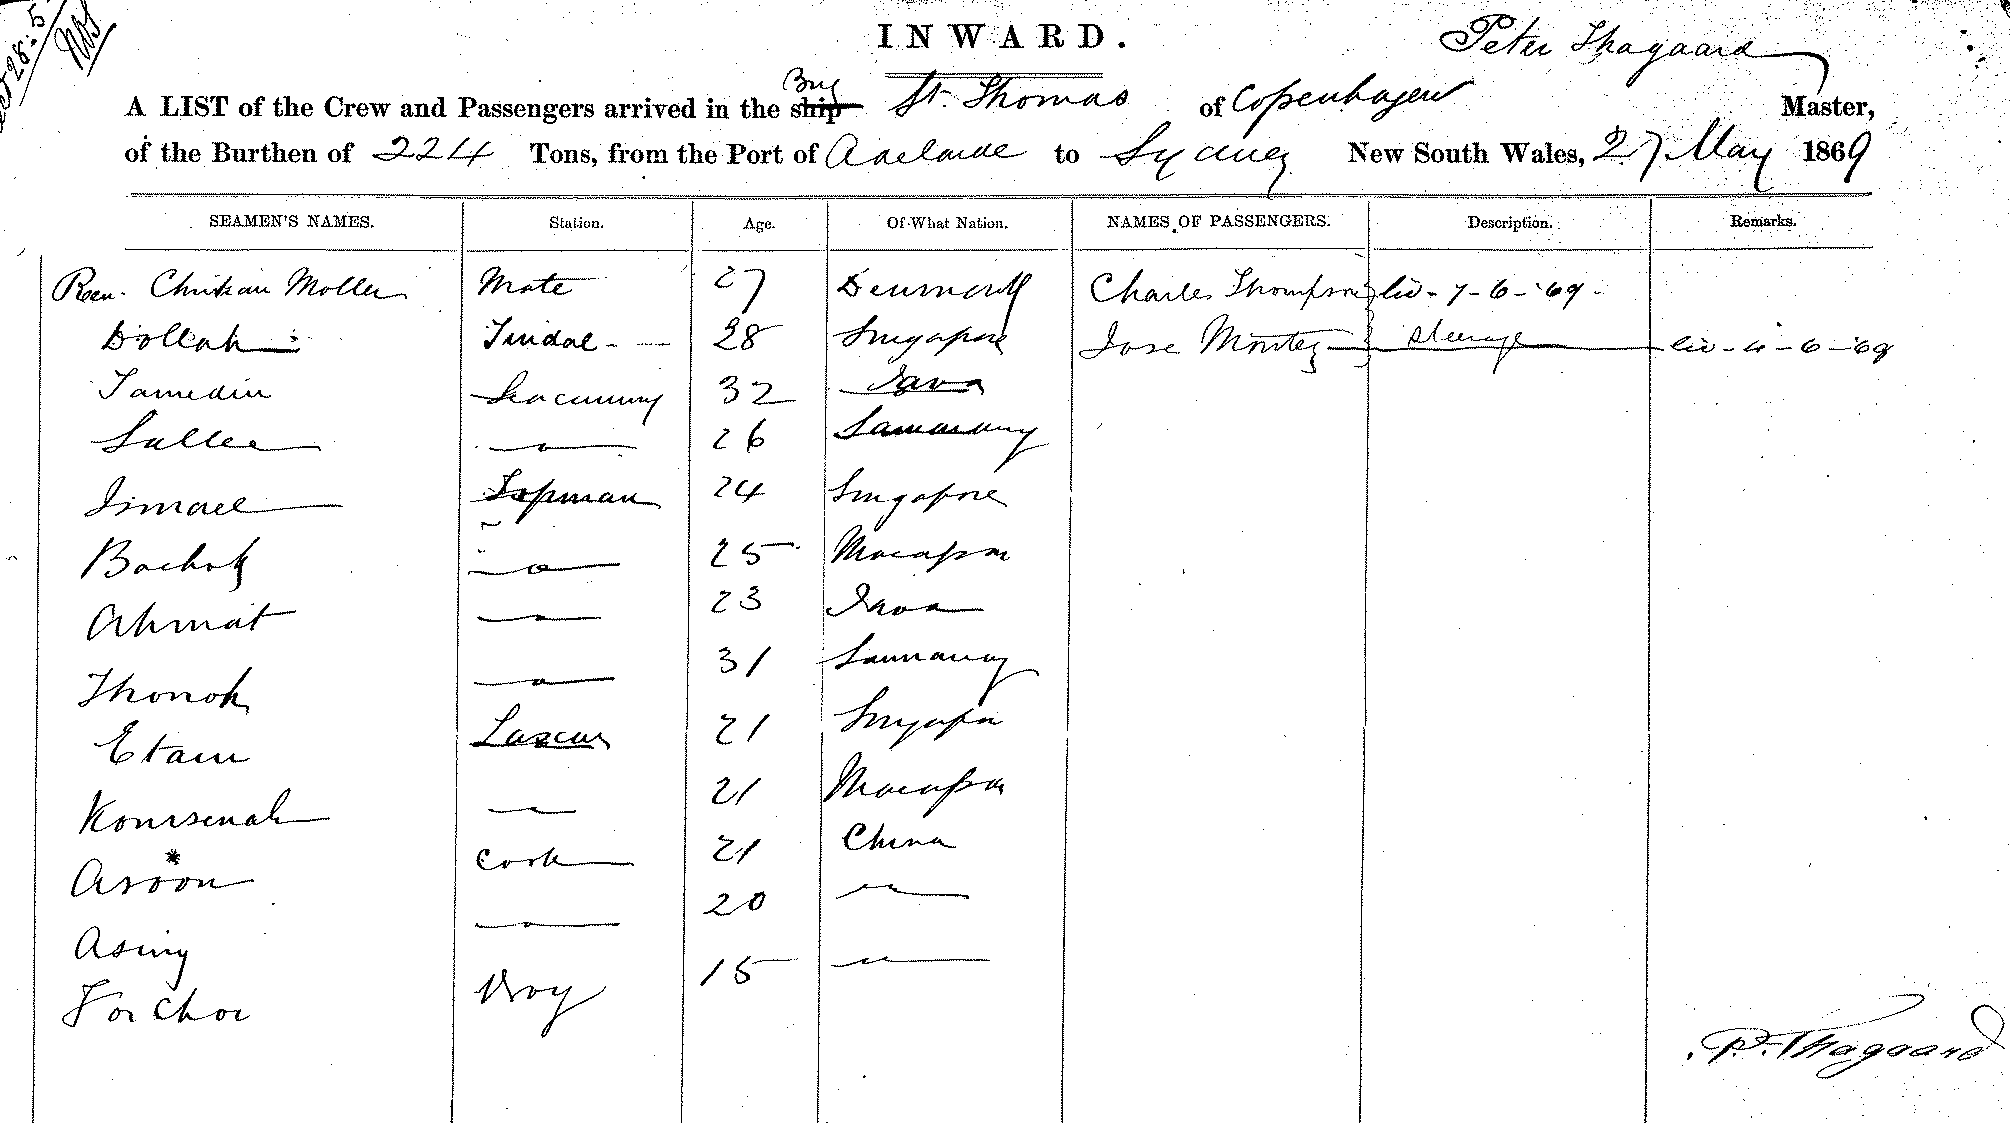 INWARD.
Peter Thagaard
A LIST of the Crew and Passengers arrived in the ship Brig St. Thomas of Copenhagen Master,
of the Burthen of 224 Tons, from the Port of Adelaide to Sydney New South Wales, 27 May 1869
SEAMEN'S NAMES. Station. Age. Of What Nation. NAMES OF PASSENGERS. Description. Remarks.
Christian Moller Mate 27 Denmark Charles Thompson liv - 7-6-'69.
Dollah Tindal 28 Singapore Jose Montez steerage liv - 4-6-'69
Tamedin Seacunny 32 Java
Sallee -"- 26 Samarang
Ismael Topman 24 Singapore
Bachok -"- 25 Macassar
Ahmat -"- 23 Java
Thonok -"- 31 Samarang
Etam Lascar 21 Singapor
Konrsenah -"- 21 Macassar
Aroon Cook 21 China
Asing -"- 20 -"-
Foi Choi Boy 15 -"-
P. Thagaard